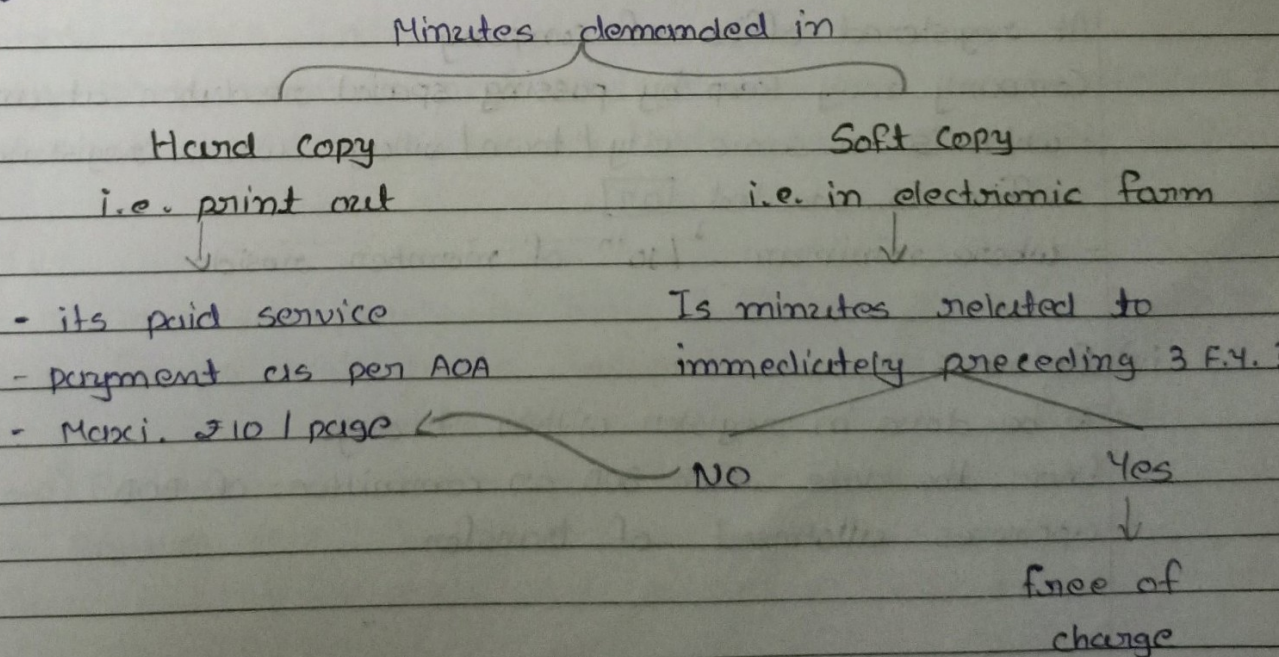 Minutes demanded in
Hard copy
i.e. print out
- its paid service
- payment as per AOA
- Maxi. ₹10 / page
Soft copy
i.e. in electronic form
Is minutes related to
immediately preceding 3 F.Y.
NO
Yes
free of
charge